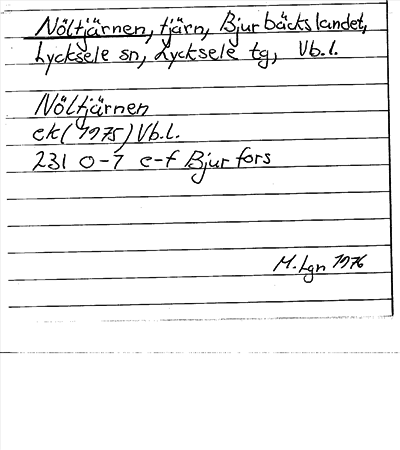 Nöltjärnen, tjärn, Bjurbäckslandet,
Lycksele sn, Lycksele tg, Vb.l.
Nöltjärnen
ek(1975)Vb.l.
231 0-7 e-f Bjurfors
M.Lgn 1976